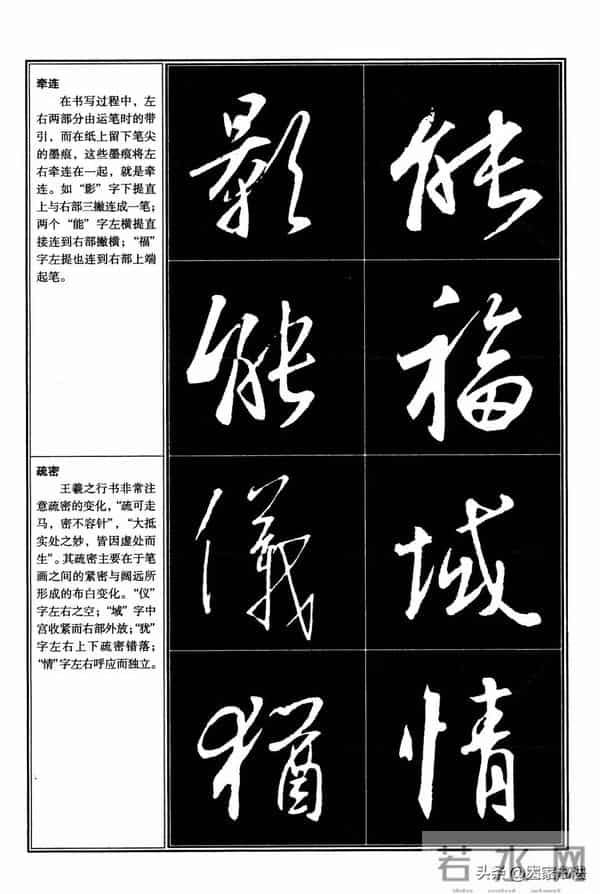 牵连
在书写过程中，左
右两部分由运笔时的带
引，而在纸上留下笔尖
的墨痕，这些墨痕将左
右牵连在一起，就是牵
连。如“影”字下提直
上与右部三撇连成一笔；
两个“能”字左横提直
接连到右部撇横；“福”
字左提也连到右部上端
起笔。
影 能
能 福
疏密
王羲之行书非常注
意疏密的变化，“疏可走
马，密不容针”，“大抵
实处之妙，皆因虚处而
生”。其疏密主要在于笔
画之间的紧密与阔远所
形成的布白变化。“仪”
字左右之空；“城”字中
宫收紧而右部外放；“犹”
字左右上下疏密错落；
“情”字左右呼应而独立。
儀 域
猶 情
若水网
头条